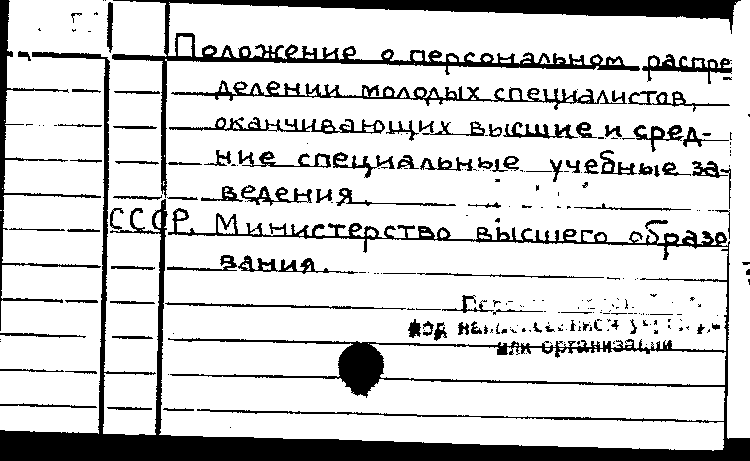 Положение о персональном распре
делении молодых специалистов,
оканчивающих высшие и сред-
ние специальные учебные за-
ведения.
СССР. Министерство высшего образо
вания.
под
или организации